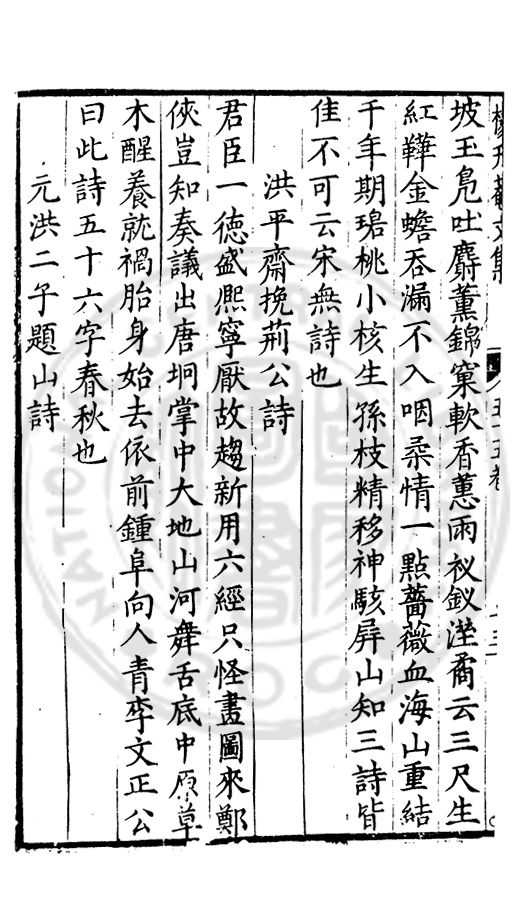 坡玉鳬吐麝薰錦窠軟香蕙兩衩釵溼裔云三尺生
紅鞾金蟾吞漏不入咽柔情一點薔薇血海山重結
千年期碧桃小核生孫枝精移神駭屏山知三詩皆
佳不可云宋無詩也
洪平齋挽荊公詩
君臣一德盛熈寧厭故趨新用六經只怪畫圖來鄭
俠豈知奏議出唐坰掌中大地山河舞舌底中原草
木醒養就禍胎身始去依前鍾阜向人青李文正公
曰此詩五十六字春秋也
元洪二子題山詩